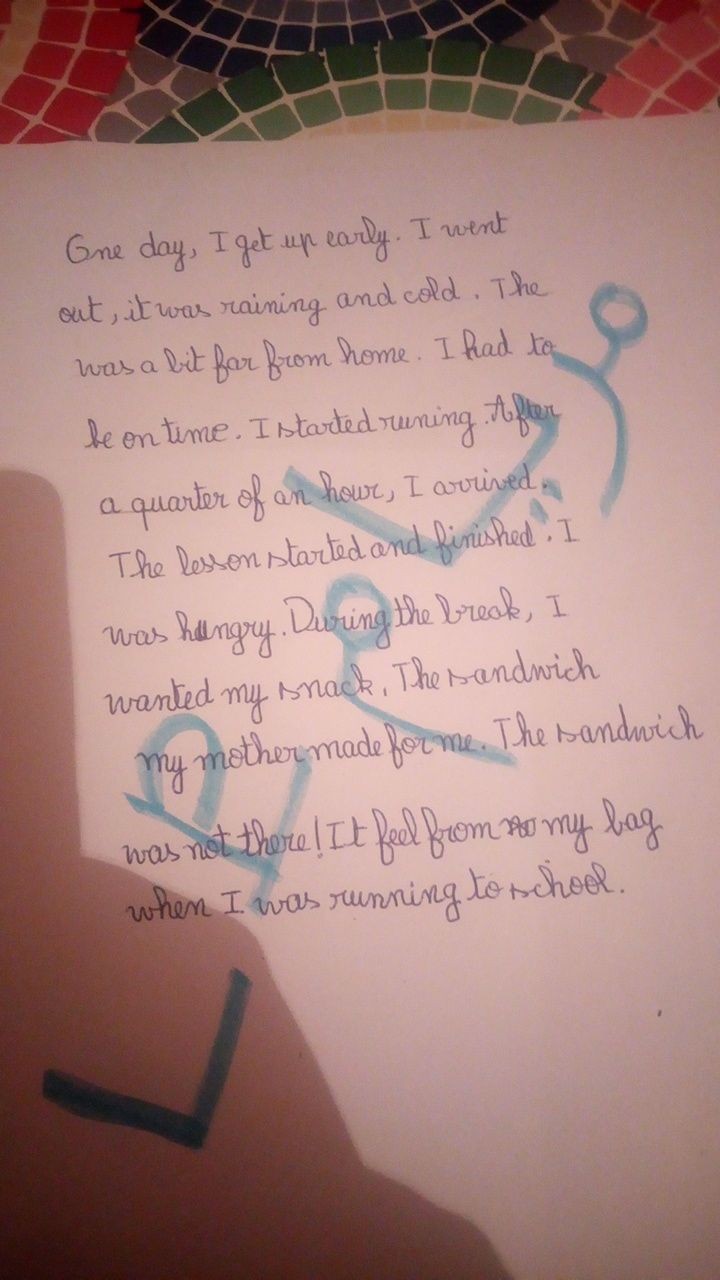 One day, I get up early. I went
out, it was raining and cold. The
was a bit far from home. I had to
be on time. I started runing. After
a quarter of an hour, I arrived.
The lesson started and finished. I
was hungry. During the break, I
wanted my snack. The sandwich
my mother made for me. The sandwich
was not there! It feel from my bag
when I was running to school.